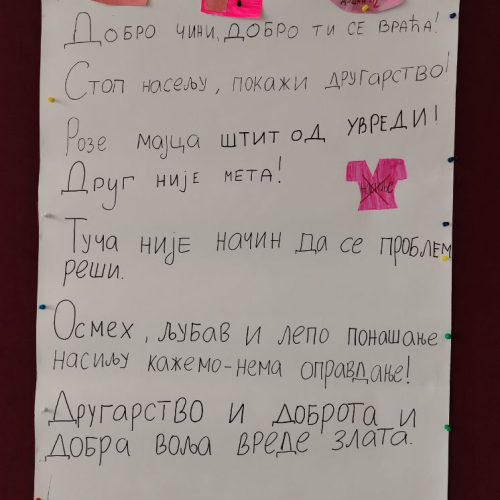 Добро чини, добро ти се враћа!
Стоп насељу, покажи другарство!
Розе мајца штит од увреди!
Друг није мета!
Туча није начин да се проблем
реши.
Осмех, љубав и лепо понашање
насиљу кажемо-нема оправдање!
Другарство и доброта и
добра воља вреде злата.